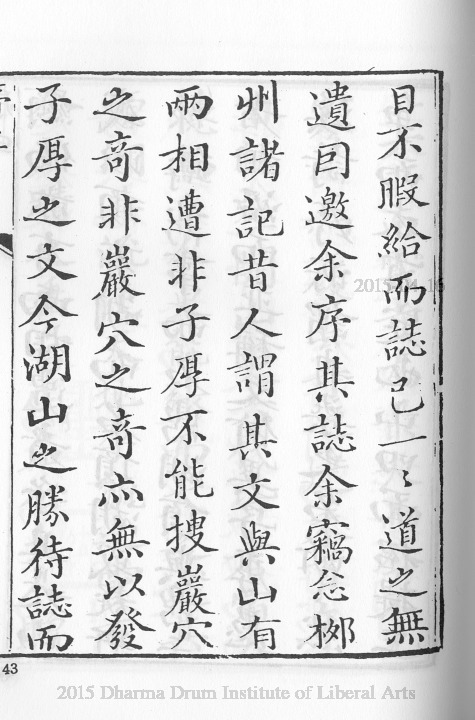 目不暇給而誌已一〻道之無
遺囙邀余序其誌余竊念栁
州諸記昔人謂其文與山有
兩相遭非子厚不能搜巖穴
之奇非巖穴之奇亦無以發
子厚之文今湖山之勝待誌而
43
2015-04-16
2015 Dharma Drum Institute of Liberal Arts